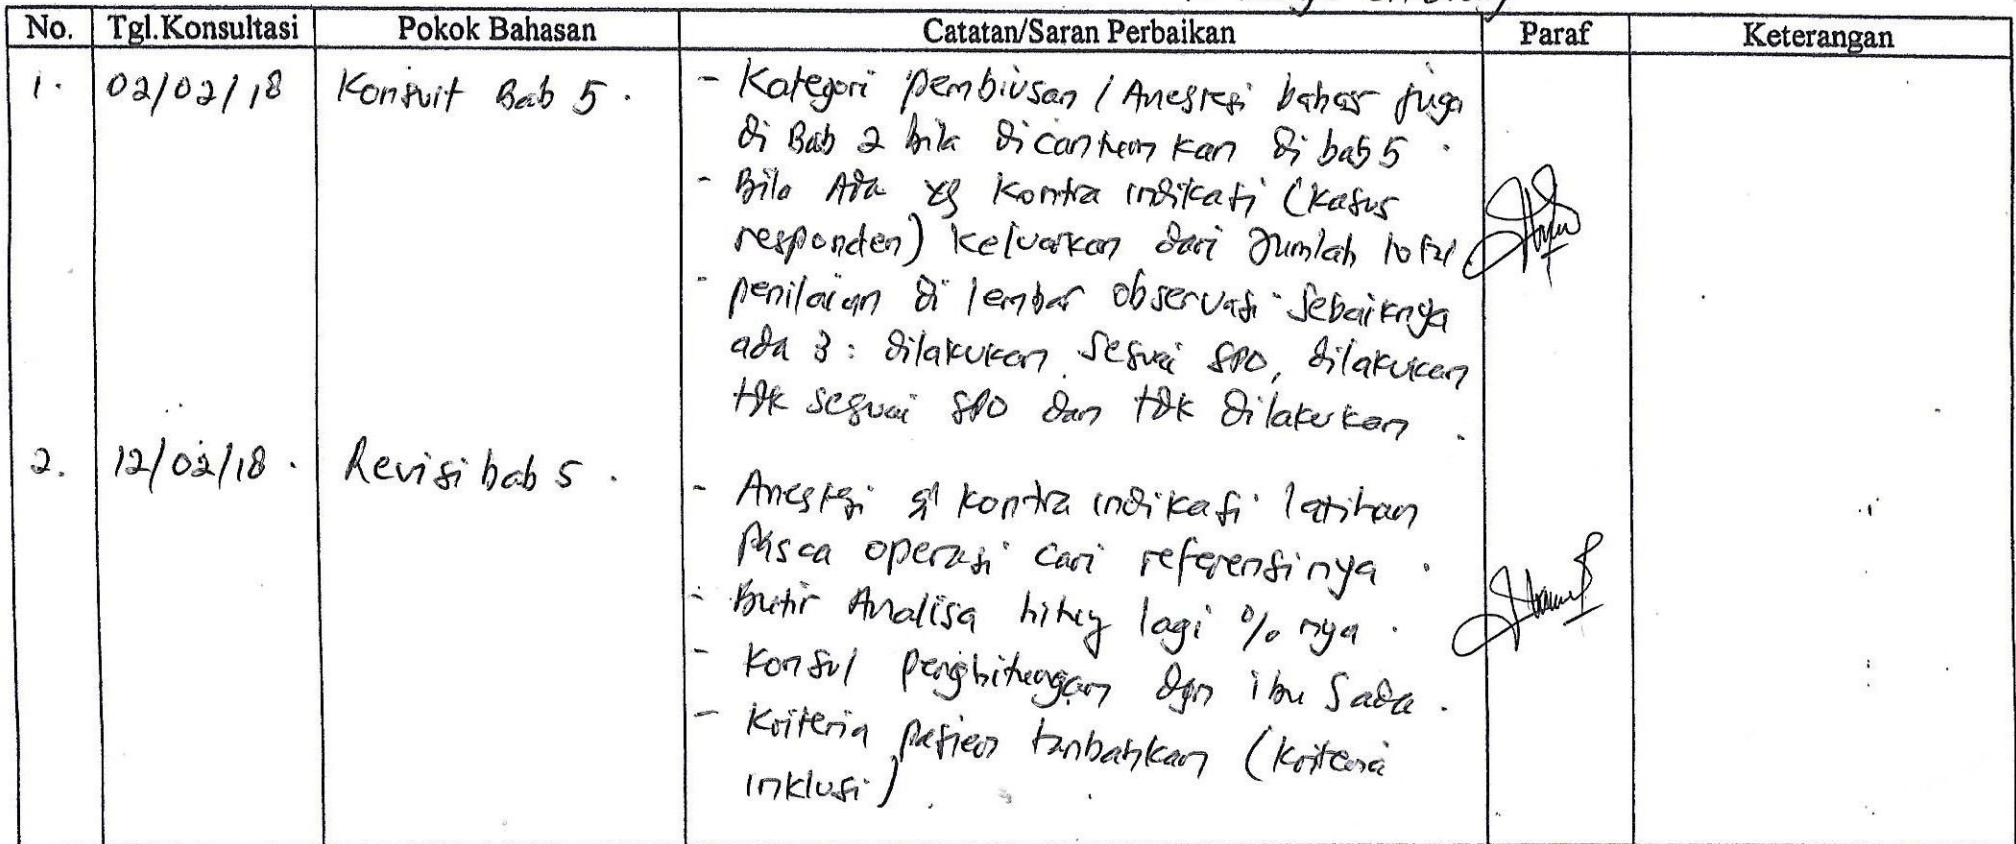 No. Tgl.Konsultasi Pokok Bahasan Catatan/Saran Perbaikan Paraf Keterangan
1. 02/02/18 Konsult Bab 5. - Kategori pembiusan / Anestesi bahas juga
di Bab 2 bila dicantumkan di bab 5.
- Bila Ada yg kontra indikasi (kasus
responden) keluarkan dari Jumlah total
- penilaian di lembar observasi sebaiknya
ada 3 : dilakukan sesuai SPO, dilakukan
tdk sesuai SPO dan tdk dilakukan.
2. 12/02/18. Revisi bab 5.
- Anestesi kontra indikasi latihan
Pasca operasi cari referensinya.
- Butir Analisa hitung lagi % nya.
- Konsul penghitungan dgn ibu Sada.
- Kriteria pasien tambahkan (kriteria
inklusi).